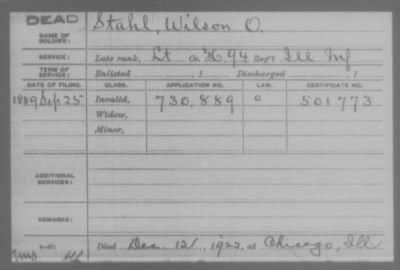 DEAD
NAME OF SOLDIER: Stahl, Wilson O.
SERVICE: Late rank, Lt Co. H, 94 Reg't Ill Inf
TERM OF SERVICE: Enlisted , 1 Discharged , 1
DATE OF FILING. CLASS. APPLICATION NO. LAW. CERTIFICATE NO.
1889 Sep 25 Invalid, 730,889 o 501773
Widow,
Minor,
ADDITIONAL SERVICES:
REMARKS:
Died Dec. 12, 1923, at Chicago, Ill